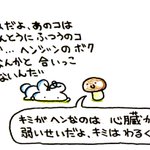 んだよ、あのコは
んとうに ふつうのコ
か… ヘンシンの ボク
なんかと 合いっこ
ないんだ!!
キミがヘンなのは 心臓か
弱いせいだよ、キミは わるく